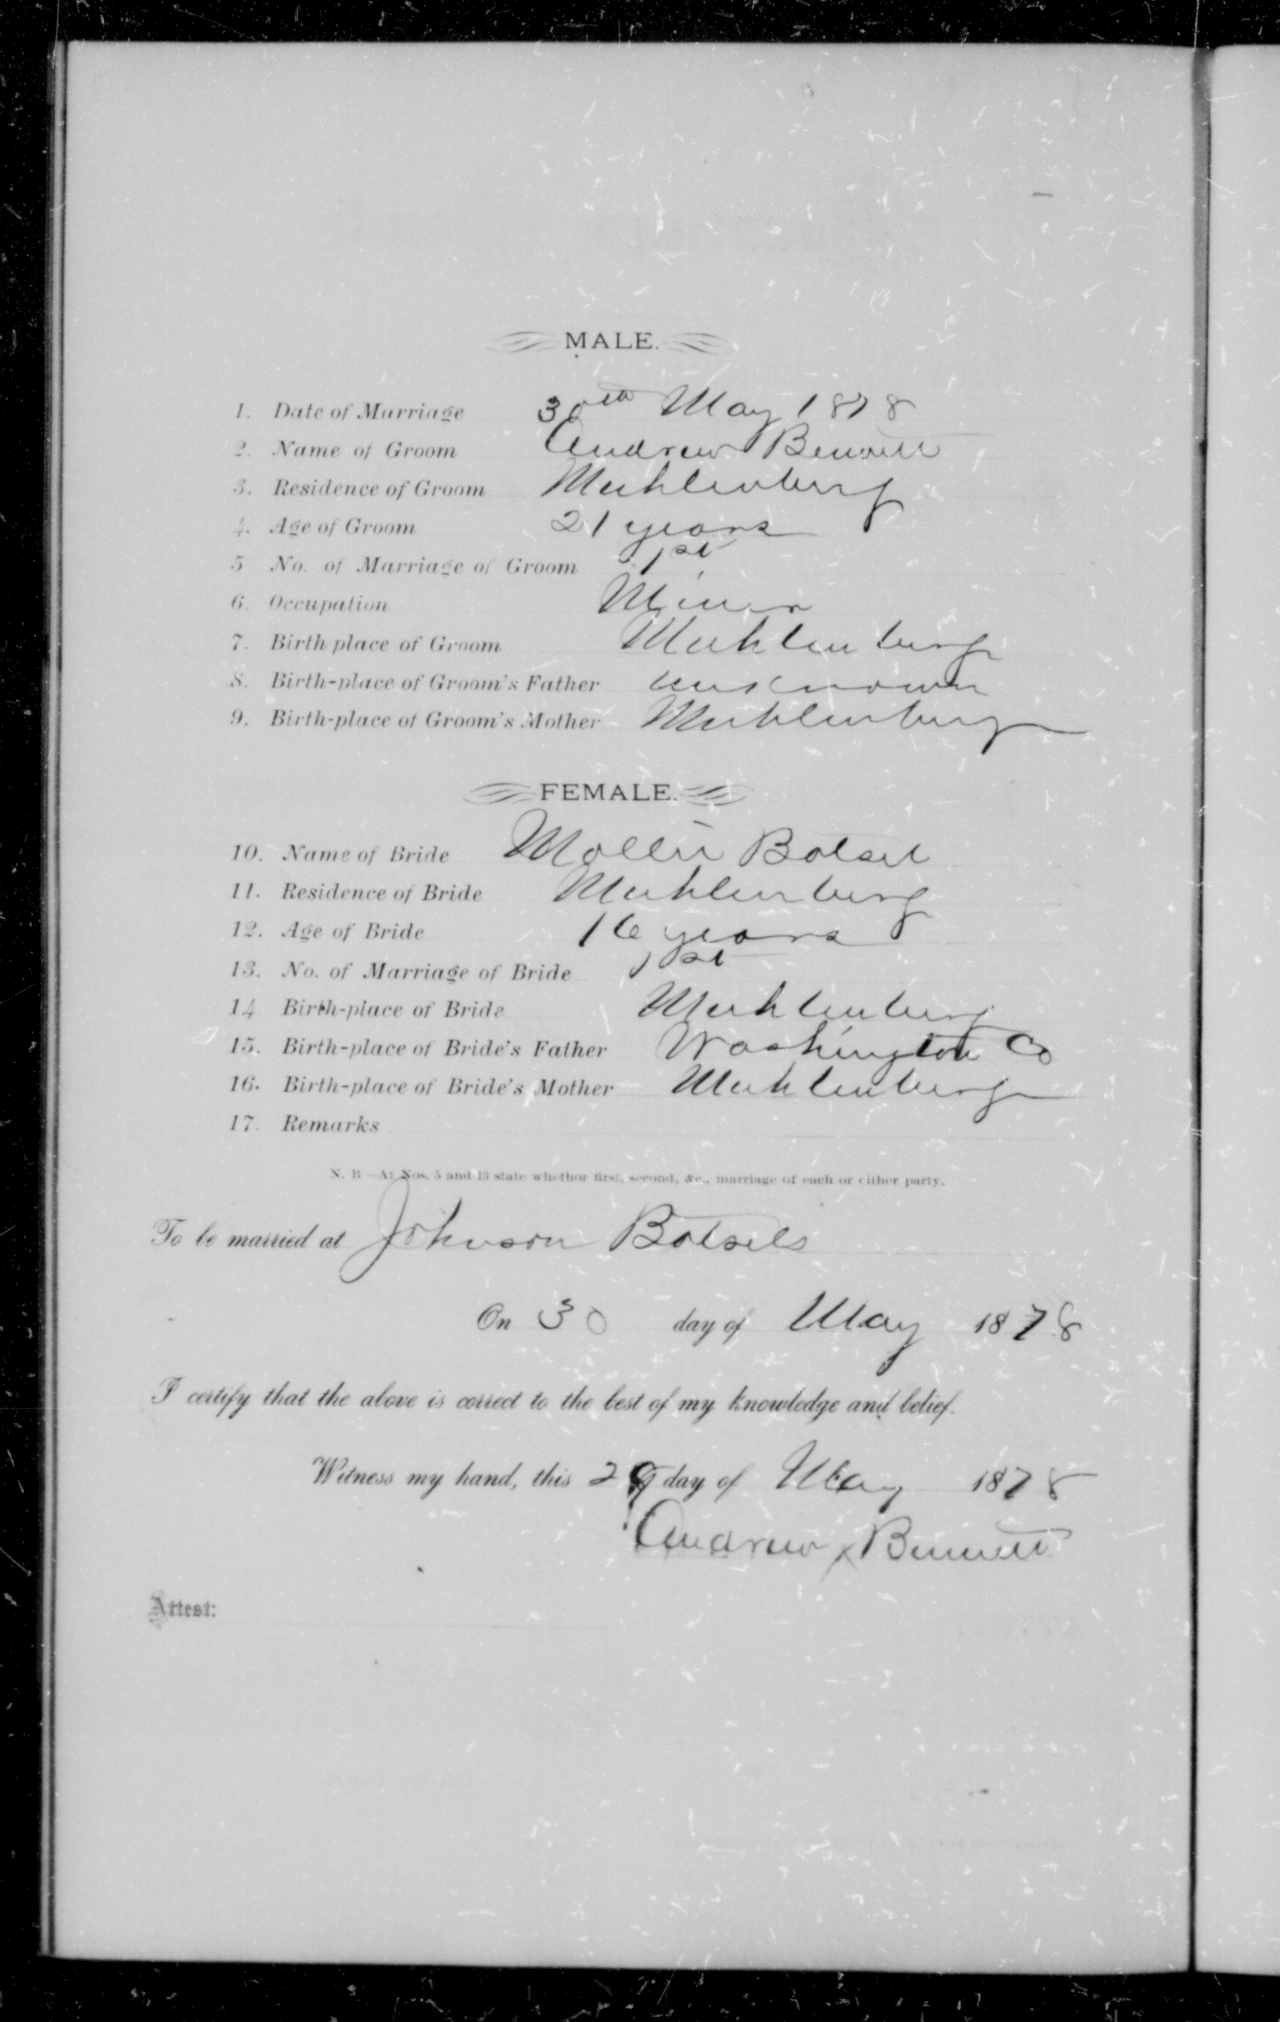 MALE.
1. Date of Marriage 30th May 1878
2. Name of Groom Andrew Bennett
3. Residence of Groom Muhlenberg
4. Age of Groom 21 years
5 No. of Marriage of Groom 1st
6. Occupation Miner
7. Birth place of Groom Muhlenberg
8. Birth-place of Groom's Father unknown
9. Birth-place of Groom's Mother Muhlenberg
FEMALE.
10. Name of Bride Mollie
11. Residence of Bride Muhlenberg
12. Age of Bride 16 years
13. No. of Marriage of Bride 1st
14 Birth-place of Bride Muhlenberg
15. Birth-place of Bride's Father Washington Co
16. Birth-place of Bride's Mother Muhlenberg
17. Remarks
N. B—At Nos. 5 and 13 state whether first, second, &c., marriage of each or either party.
To be married at Johnson
On 30 day of May 1878
I certify that the above is correct to the best of my knowledge and belief.
Witness my hand, this 29 day of May 1878
Andrew x Bennett
Attest: